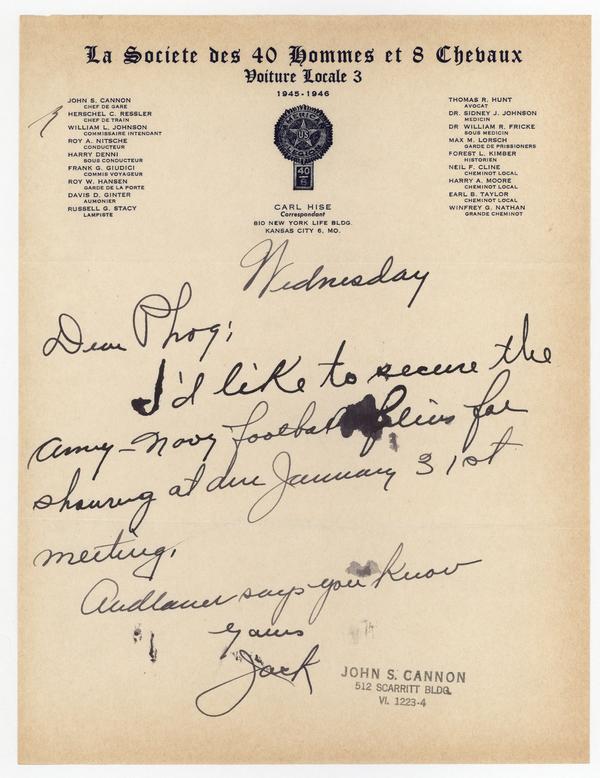 La Societe des 40 Hommes et 8 Chevaux
Voiture Locale 3
1945-1946
JOHN S. CANNON
CHEF DE GARE
HERSCHEL C. RESSLER
CHEF DE TRAIN
WILLIAM L. JOHNSON
COMMISSAIRE INTENDANT
ROY A. NITSCHE
CONDUCTEUR
HARRY DENNI
SOUS CONDUCTEUR
FRANK G. GIUDICI
COMMIS VOYAGEUR
ROY W. HANSEN
GARDE DE LA PORTE
DAVIS D. GINTER
AUMONIER
RUSSELL G. STACY
LAMPISTE
AMERICAN
US
LEGION
40
8
CARL HISE
Correspondant
810 NEW YORK LIFE BLDG.
KANSAS CITY 6, MO.
THOMAS R. HUNT
AVOCAT
DR. SIDNEY J. JOHNSON
MEDICIN
DR WILLIAM R. FRICKE
SOUS MEDICIN
MAX M. LORSCH
GARDE DE PRISSIONERS
FOREST L. KIMBER
HISTORIEN
NEIL F. CLINE
CHEMINOT LOCAL
HARRY A. MOORE
CHEMINOT LOCAL
EARL B. TAYLOR
CHEMINOT LOCAL
WINFREY G. NATHAN
GRANDE CHEMINOT
Wednesday
Dear Phog;
I'd like to secure the
Army-Navy football films for
showing at our January 31st
meeting.
Andlauer says you know
Yours
Jack
JOHN S. CANNON
512 SCARRITT BLDG.
VI. 1223-4